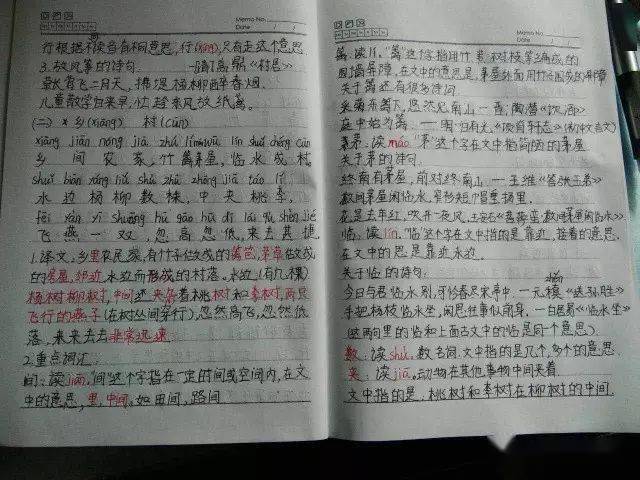 Memo No.
Date / /
行根据不读音有相意思,行(xíng),只有走这个意思
3.放风筝的诗句 ——清 高鼎《村居》
草长莺飞二月天,拂堤杨柳醉春烟。
儿童散学归来早,忙趁东风放纸鸢。
(二) × 乡(xiāng) 村(cūn)
xiāng jiān nóng jiā zhú lí máo wū lín shuǐ chéng cūn
乡 间 农 家,竹 篱 茅 屋,临 水 成 村
shuǐ biān yáng liǔ shù zhū zhōng jiā táo lǐ
水 边 杨 柳 数 株,中 夹 桃 李,
fēi yàn yì shuāng hū gāo hū dī lái qù shèn jié
飞 燕 一 双,忽 高 忽 低,来 去 甚 捷
1.译文,乡里农民家,有竹子做成的篱笆,茅草做成
的茅屋,邻近水边而形成的村落。水边,(有几棵)
杨树柳树,中间还夹杂着桃树和李树,两只
飞行的燕子(在树丛间穿行),忽然高飞,忽然低
落,来来去去非常迅速
2.重点词汇:
间:读jiān,"间"这个字指在一定的时间或空间内,在文
中的意思,里,中间。如田间,路间
Memo No.
Date / /
篱:读lí,"篱"这个字指用竹、苇、树枝等编成的
围墙屏障,在文中的意思是,茅屋外面用竹子围成的屏障
关于篱还有很多诗词
采菊东篱下,悠然见南山 —晋,陶潜《饮酒》
庭中始为篱。 —明·归有光,《项脊轩志》(初中文言文)
茅:读máo"茅"这个字在文中指简陋的茅屋
关于茅的诗句:
终南有茅屋,前对终南山 —王维《答张五弟》
数间茅屋闲临水,窄衫短帽垂杨里。
花是去年红,吹开一夜风,王安石《菩萨蛮,数间茅屋闲临水》
临:读lín,"临"这个字在文中指的是靠近,挨着的意思。
在文中的思是靠近水边。
关于临的诗句:
今日与君临水别,可怜春尽宋亭中,—元稹《送孙胜》
手把杨枝临水坐,闲思往事似前身,—白居易《临水坐》
(这两句里的临和上面古文中的临是同一个意思)
数:读shù,数名词,文中指的是几个,多个的意思
夹:读jiā,动物在其他事物中间夹着
文中指的是,桃树和李树在柳树的中间.